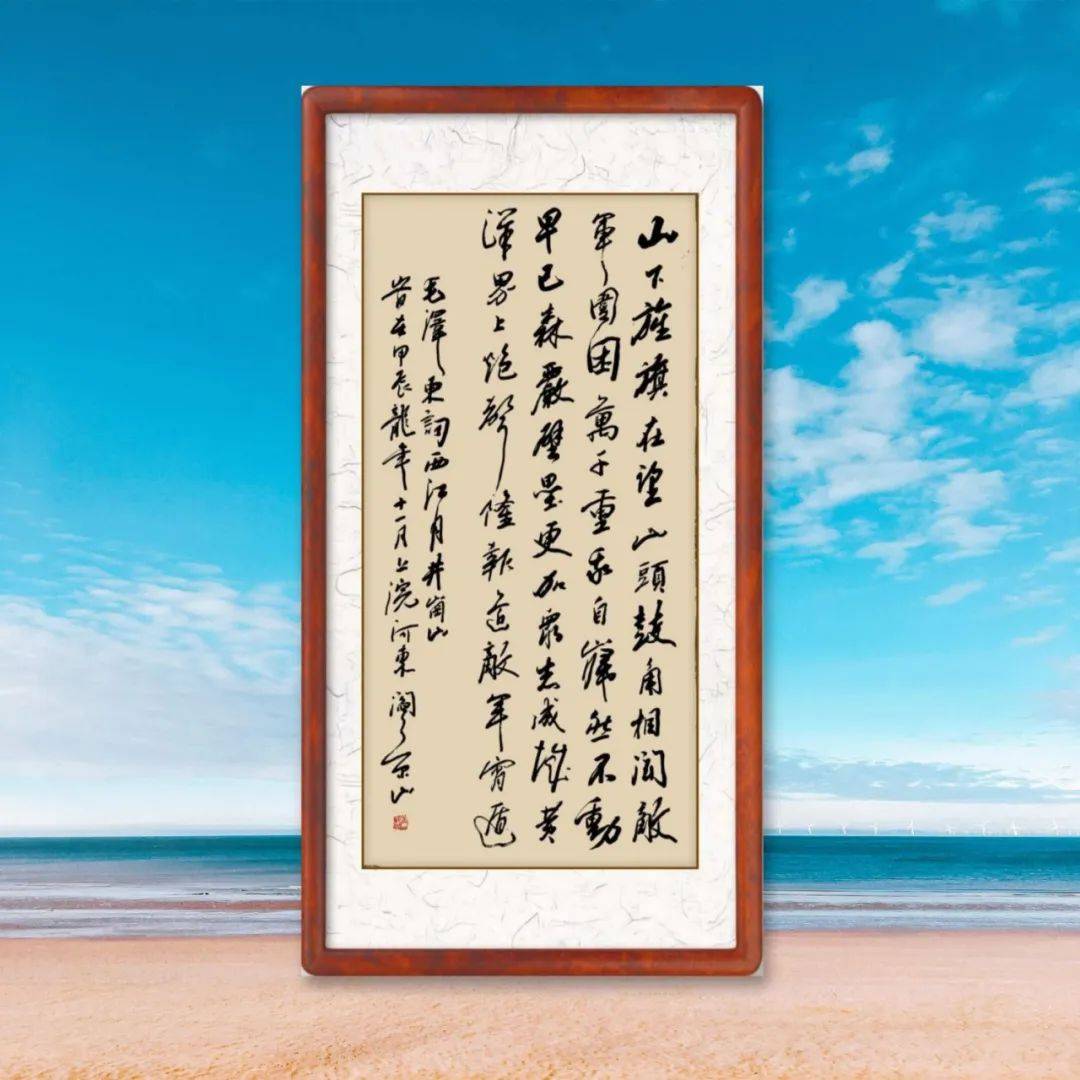 山下旌旗在望山頭鼓角相聞敵
軍圍困萬千重我自巋然不動
早已森嚴壁壘更加衆志成城黄
洋界上炮聲隆報道敵軍宵遁
毛澤東詞西江月井崗山
嵗在甲辰龍年十一月上浣河東閻京山